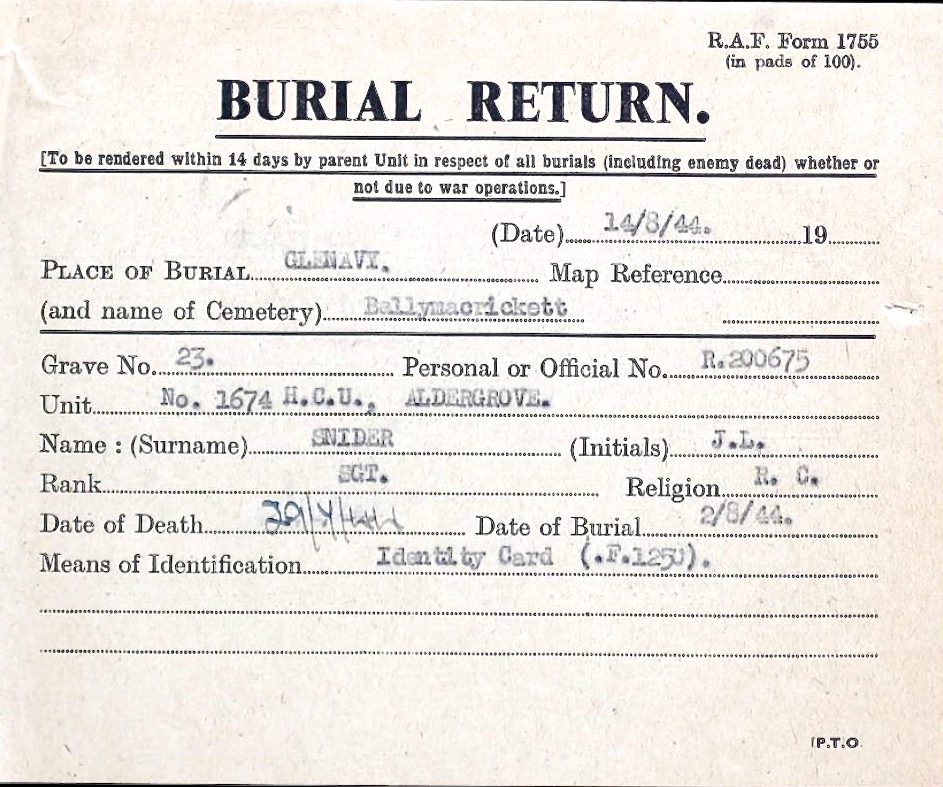 R.A.F. Form 1755
(in pads of 100).
BURIAL RETURN.
[To be rendered within 14 days by parent Unit in respect of all burials (including enemy dead) whether or
not due to war operations.]
(Date) 14/8/44. 19
PLACE OF BURIAL GLENAVY. Map Reference
(and name of Cemetery) Ballymacrickett
Grave No. 23. Personal or Official No. R.200675
Unit No. 1674 H.C.U., ALDERGROVE.
Name : (Surname) SNIDER (Initials) J.L.
Rank SGT. Religion R. C.
Date of Death 29/7/44 Date of Burial 2/8/44.
Means of Identification Identity Card (.F.1250).
P.T.O.